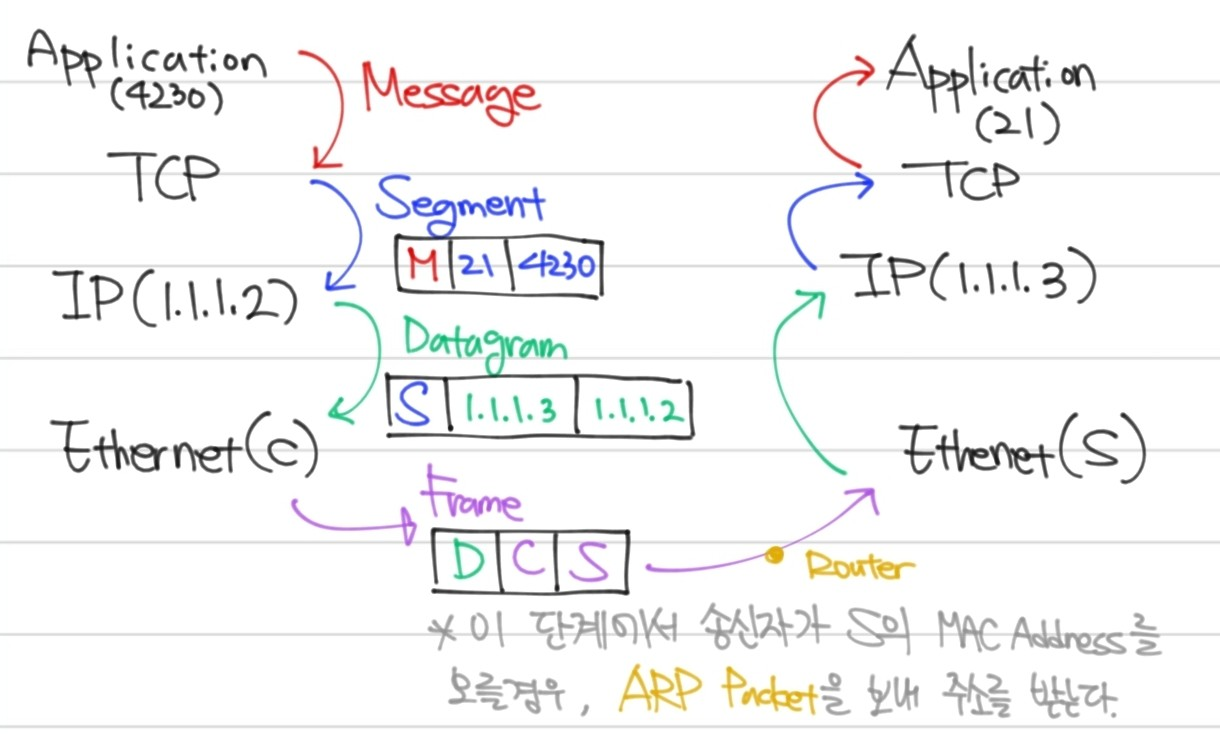 Application
(4230)
Message
TCP
Segment
M 21 4230
IP(1.1.1.2)
Datagram
S 1.1.1.3 1.1.1.2
Ethernet(C)
Frame
D C S
Application
(21)
TCP
IP(1.1.1.3)
Ethenet(S)
Router
* 이 단계에서 송신자가 S의 MAC Address를
모를경우, ARP Packet을 보내 주소를 받는다.